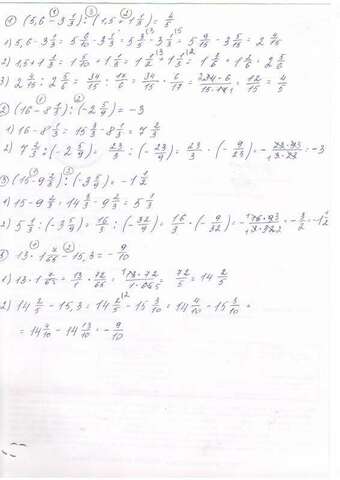 ① (5,6 - 3 1/3) : (1,5 + 1 1/3) = 4/5
1) 5,6 - 3 1/3 = 5 6/10 - 3 1/3 = 5 3/5 - 3 1/3 = 5 9/15 - 3 5/15 = 2 4/15
2) 1,5 + 1 1/3 = 1 5/10 + 1 1/3 = 1 1/2 + 1 1/3 = 1 3/6 + 1 2/6 = 2 5/6
3) 2 4/15 : 2 5/6 = 34/15 : 17/6 = 34/15 · 6/17 = 34·6/15·17 = 12/15 = 4/5
② (16 - 8 1/3) : (-2 5/9) = -3
1) 16 - 8 1/3 = 15 3/3 - 8 1/3 = 7 2/3
2) 7 2/3 : (-2 5/9) = 23/3 : (-23/9) = 23/3 · (-9/23) = - 23·9/3·23 = -3
③ (15 - 9 2/3) : (-3 5/9) = -1 1/2
1) 15 - 9 2/3 = 14 3/3 - 9 2/3 = 5 1/3
2) 5 1/3 : (-3 5/9) = 16/3 : (-32/9) = 16/3 · (-9/32) = - 16·9/3·32 = - 3/2 = -1 1/2
13 · 1 7/65 - 15,3 = - 9/10
1) 13 · 1 7/65 = 13/1 · 72/65 = 13·72/1·65 = 72/5 = 14 2/5
2) 14 2/5 - 15,3 = 14 2/5 - 15 3/10 = 14 4/10 - 15 3/10 =
= 14 4/10 - 14 13/10 = - 9/10